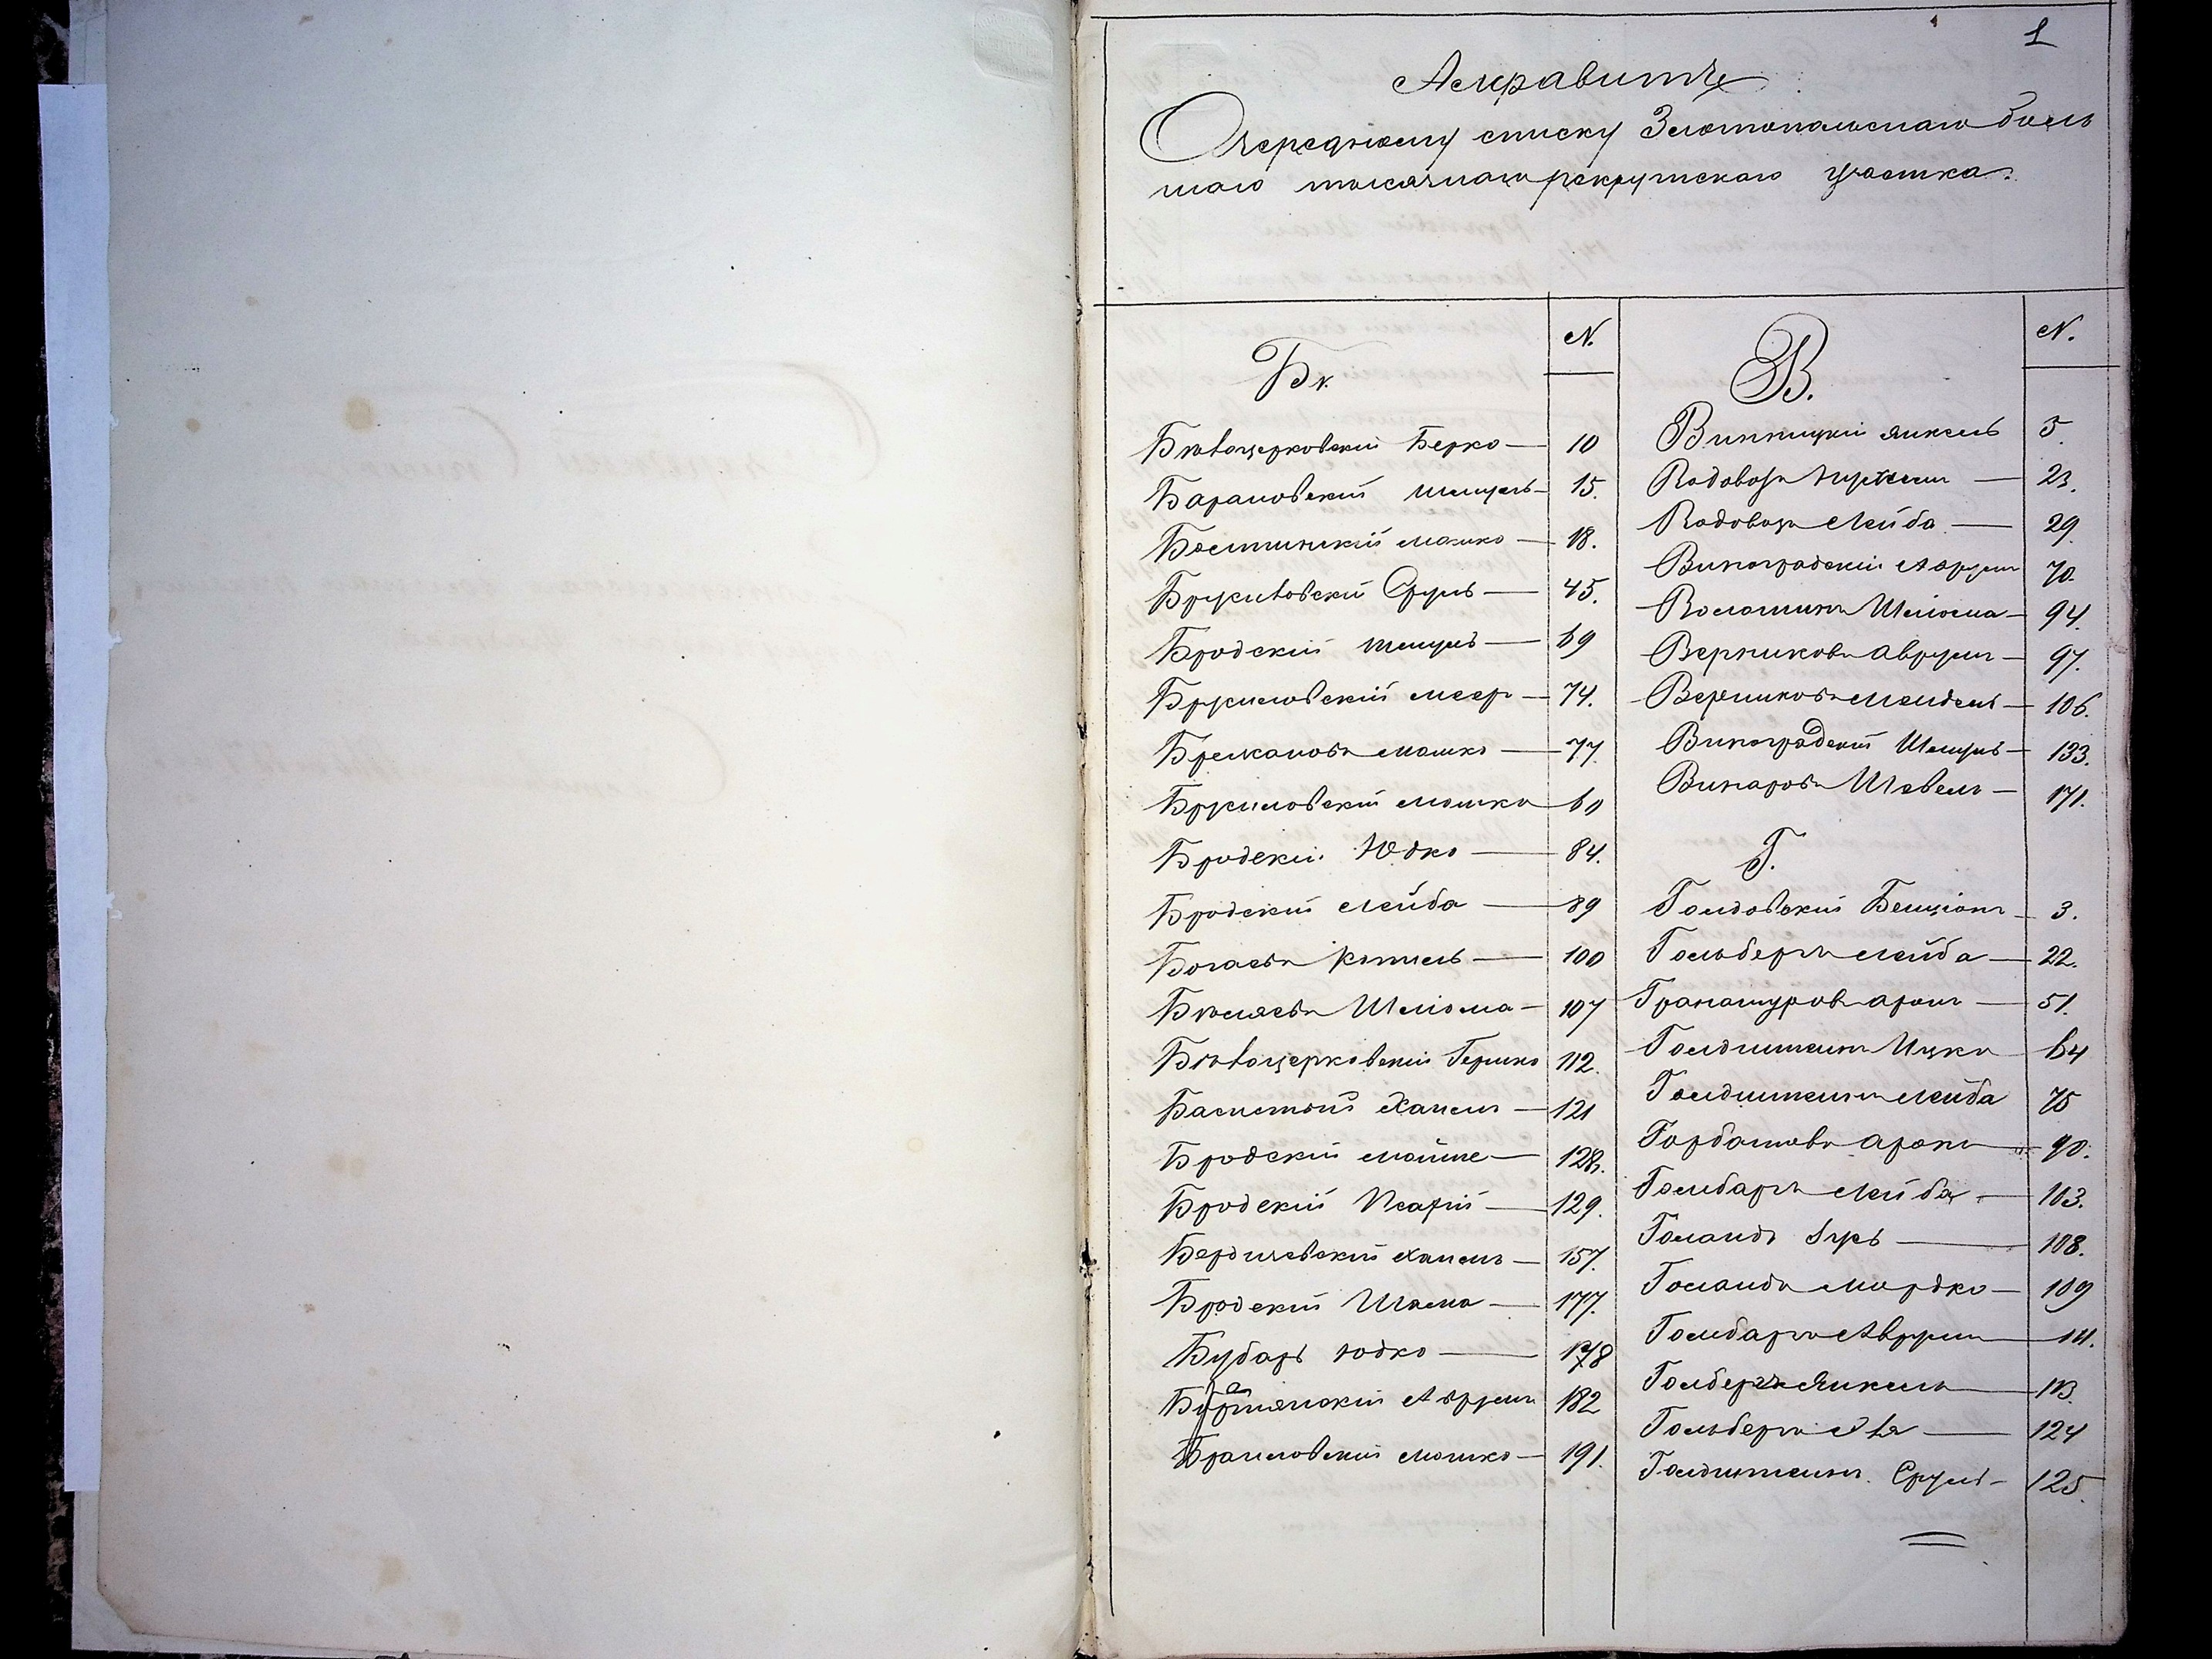 1
Алфавитъ
Очередному списку Златопольскаго боль
шаго тысячнаго рекрутскаго участка.
Б.
N.
Бѣлоцерковскій Берко — 10
Барановскій Шмуль — 15.
Мошко — 18.
Брусиловскій Сруль — 45.
Бродскій Шмуль — 69
Брусиловскій Меер — 74.
Мошко — 77.
Брусиловскій Мошко 80
Бродскій Юдко — 84.
Бродскій Лейба — 89
Богаевъ — 100
Бѣляевъ Шліома — 107
Бѣлоцерковскій Гершко 112.
Басистый Хаимъ — 121
Бродскій — 128.
Бродскій — 129.
Бердичевскій Хаимъ — 157.
Бродскій — 177.
Бубарь Юдко — 178
Аврумъ 182
Браиловскій Мошко — 191.
В.
N.
Винницкій Янкель 5.
Водовозъ — 23.
Водовозъ Лейба — 29
Виноградскій Аврумъ 70.
Волошинъ Шліома — 94.
Верниковъ Аврумъ — 97.
Верниковъ Мендель — 106.
Виноградскій Шмуль — 133.
Винаровъ — 171.
Г.
Голдовскій Бенціонъ — 3.
Гольбергъ Лейба — 22.
Гранатуровъ Аронъ — 51.
Голдштейнъ Ицко — 64
Голдштейнъ Лейба 75
Горбатовъ Аронъ — 90.
Голбаръ Лейба — 103.
Голандъ — 108.
Голандъ Мордко — 109
Голбаръ Аврумъ — 111.
Голбергъ Янкель — 113.
Гольбергъ — 124
Голдштейнъ Сруль — 125.